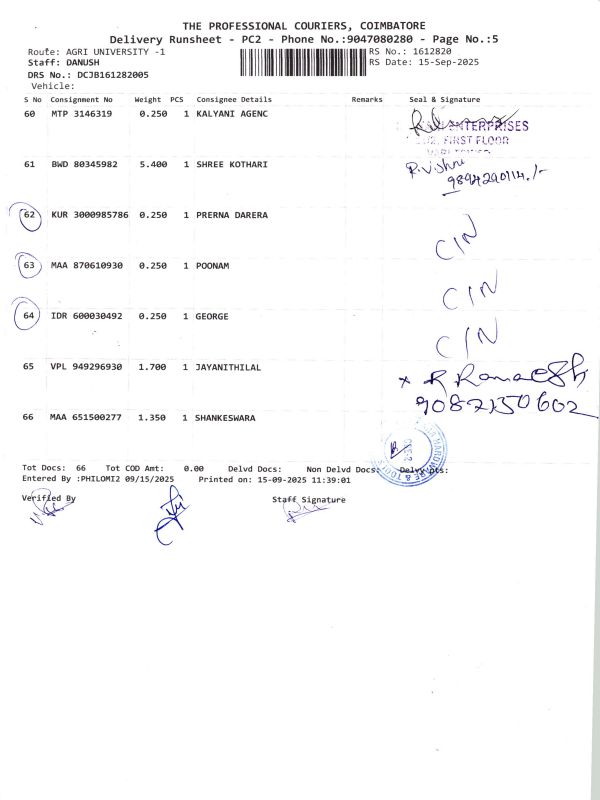 THE PROFESSIONAL COURIERS, COIMBATORE
Delivery Runsheet - PC2 - Phone No.:9047080280 - Page No.:5
Route: AGRI UNIVERSITY -1 RS No.: 1612820
Staff: DANUSH RS Date: 15-Sep-2025
DRS No.: DCJB161282005
Vehicle:
S No Consignment No Weight PCS Consignee Details Remarks Seal & Signature
60 MTP 3146319 0.250 1 KALYANI AGENC
ENTERPRISES
FIRST FLOOR
61 BWD 80345982 5.400 1 SHREE KOTHARI
R.Vishnu
9894290114./-
62 KUR 3000985786 0.250 1 PRERNA DARERA
C/N
63 MAA 870610930 0.250 1 POONAM
C/N
64 IDR 600030492 0.250 1 GEORGE
C/N
65 VPL 949296930 1.700 1 JAYANITHILAL
x R Ramaesh
9082150602
66 MAA 651500277 1.350 1 SHANKESWARA
HARDWARE & TOOLS
Tot Docs: 66 Tot COD Amt: 0.00 Delvd Docs: Non Delvd Docs: Delvy pts:
Entered By :PHILOMI2 09/15/2025 Printed on: 15-09-2025 11:39:01
Verified By Staff Signature